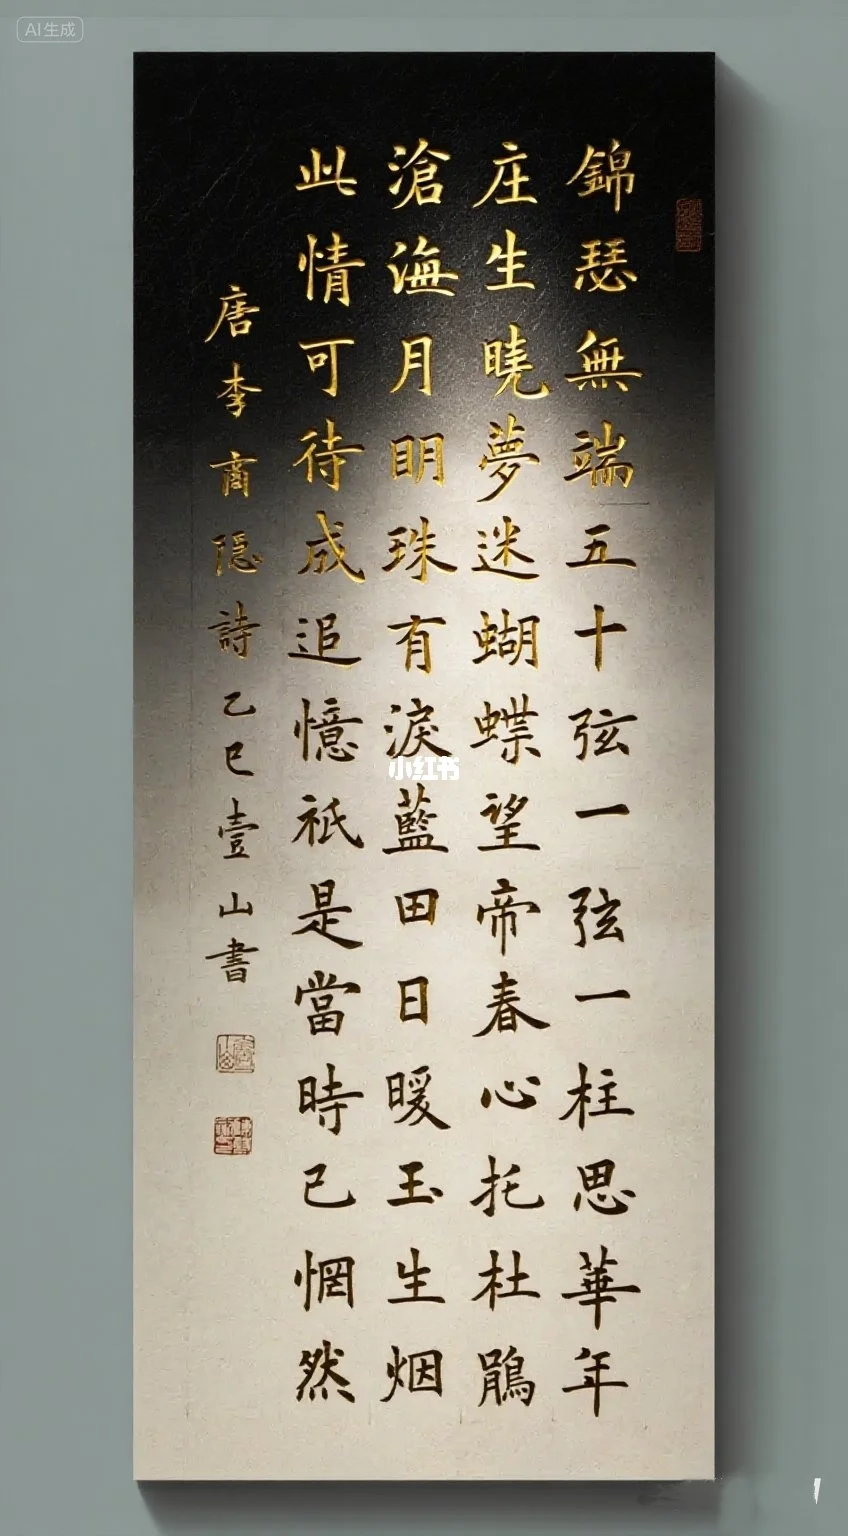 AI生成
錦瑟無端五十弦一弦一柱思華年
庄生曉夢迷蝴蝶望帝春心托杜鵑
滄海月明珠有淚藍田日暖玉生烟
此情可待成追憶祇是當時已惘然
唐李商隐詩乙巳壹山書
小红书